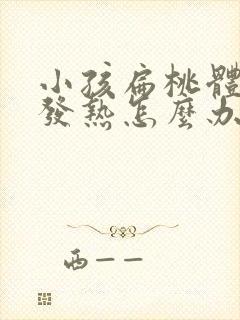 小孩扁桃體
發熱怎麼办
西——